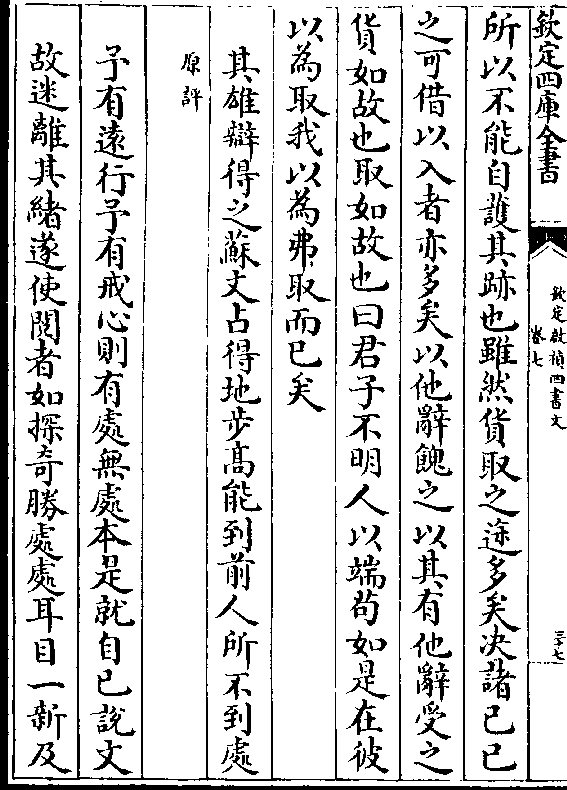 欽定四庫全書
欽定啟禎四書文
卷七
三十七
所以不能自護其跡也雖然貨取之途多矣决諸己己
之可借以入者亦多矣以他辭餽之以其有他辭受之
貨如故也取如故也曰君子不明人以端苟如是在彼
以為取我以為弗取而已矣
其雄辯得之蘇文占得地步髙能到前人所不到處
原評
予有遠行予有戒心則有處無處本是就自已說文
故迷離其緒遂使閱者如探奇勝處處耳目一新及